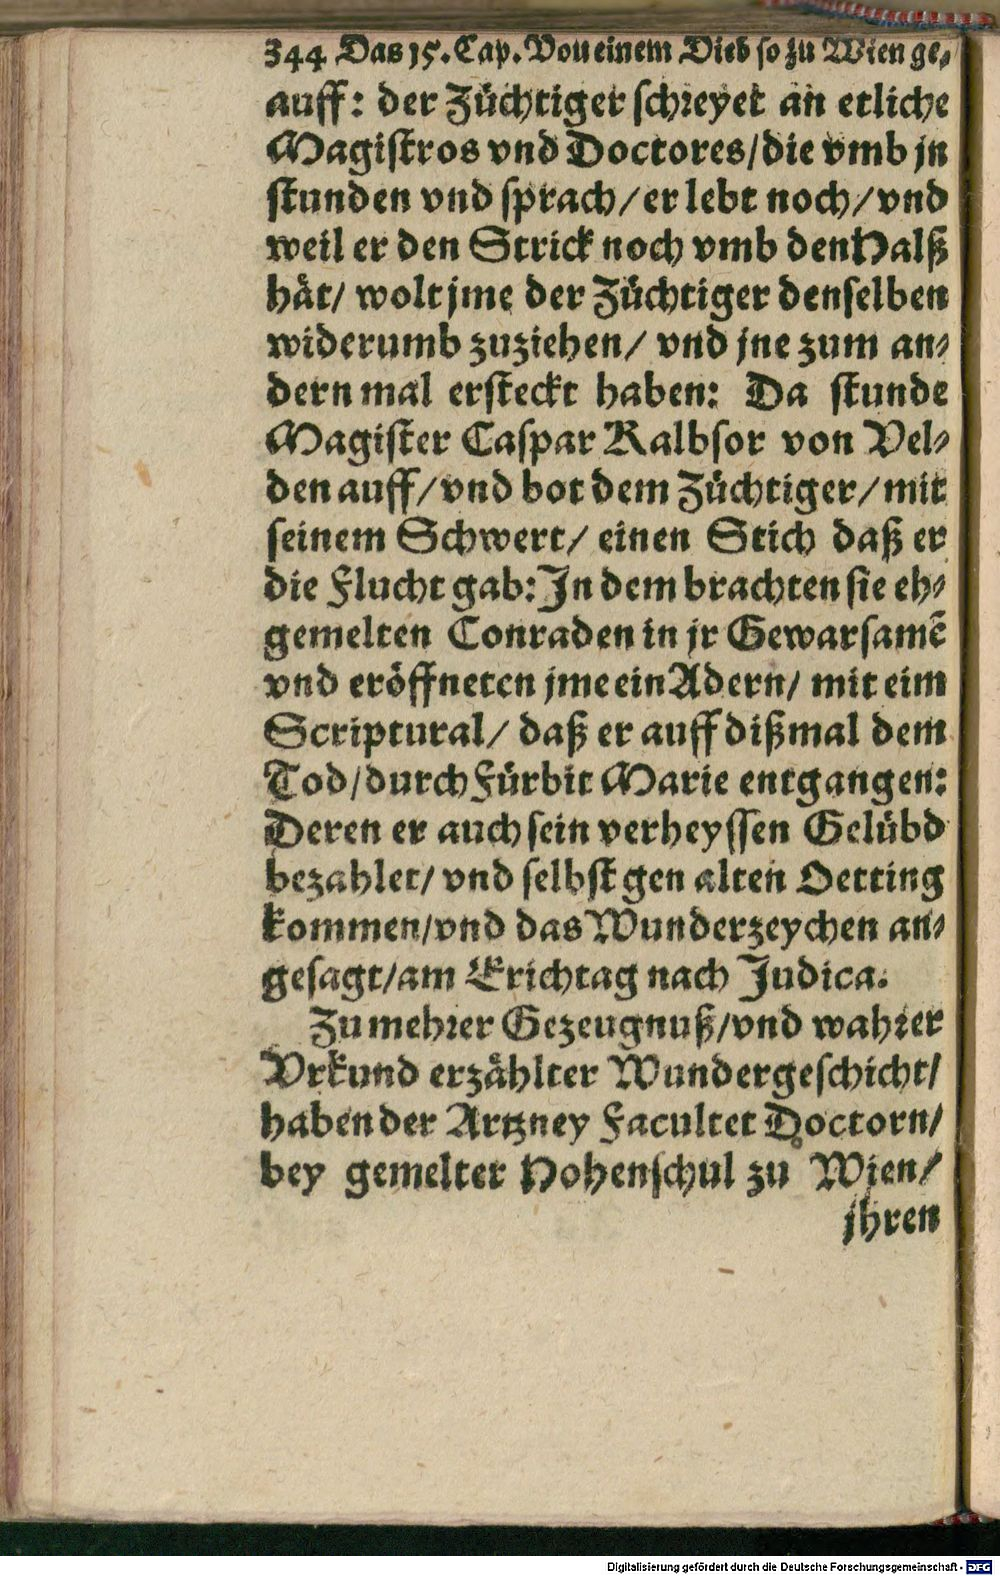 344 Das 15. Cap. Von einem Dieb so zu Wien ge-
auff: der Züchtiger schreyet an etliche
Magistros vnd Doctores/die vmb jn
stunden vnd sprach/er lebt noch/vnd
weil er den Strick noch vmb den Halß
hät/ wolt jme der Züchtiger denselben
widerumb zuziehen/ vnd jne zum an-
dern mal ersteckt haben: Da stunde
Magister Caspar Kalbsor von Vel-
den auff/vnd bot dem Züchtiger/mit
seinem Schwert/ einen Stich daß er
die Flucht gab: In dem brachten sie eh-
gemelten Conraden in jr Gewarsamẽ
vnd eröffneten jme ein Adern/ mit eim
Scriptural/ daß er auff dißmal dem
Tod/durch Fürbit Marie entgangen:
Deren er auch sein verheyssen Gelübd
bezahlet/ vnd selbst gen alten Oetting
kommen/vnd das Wunderzeychen an-
gesagt/am Erichtag nach Judica.
Zu mehrer Gezeugnuß/vnd wahrer
Vrkund erzählter Wundergeschicht/
haben der Artzney Facultet Doctorn/
bey gemelter Hohenschul zu Wien/
jhren
Digitalisierung gefördert durch die Deutsche Forschungsgemeinschaft - DFG